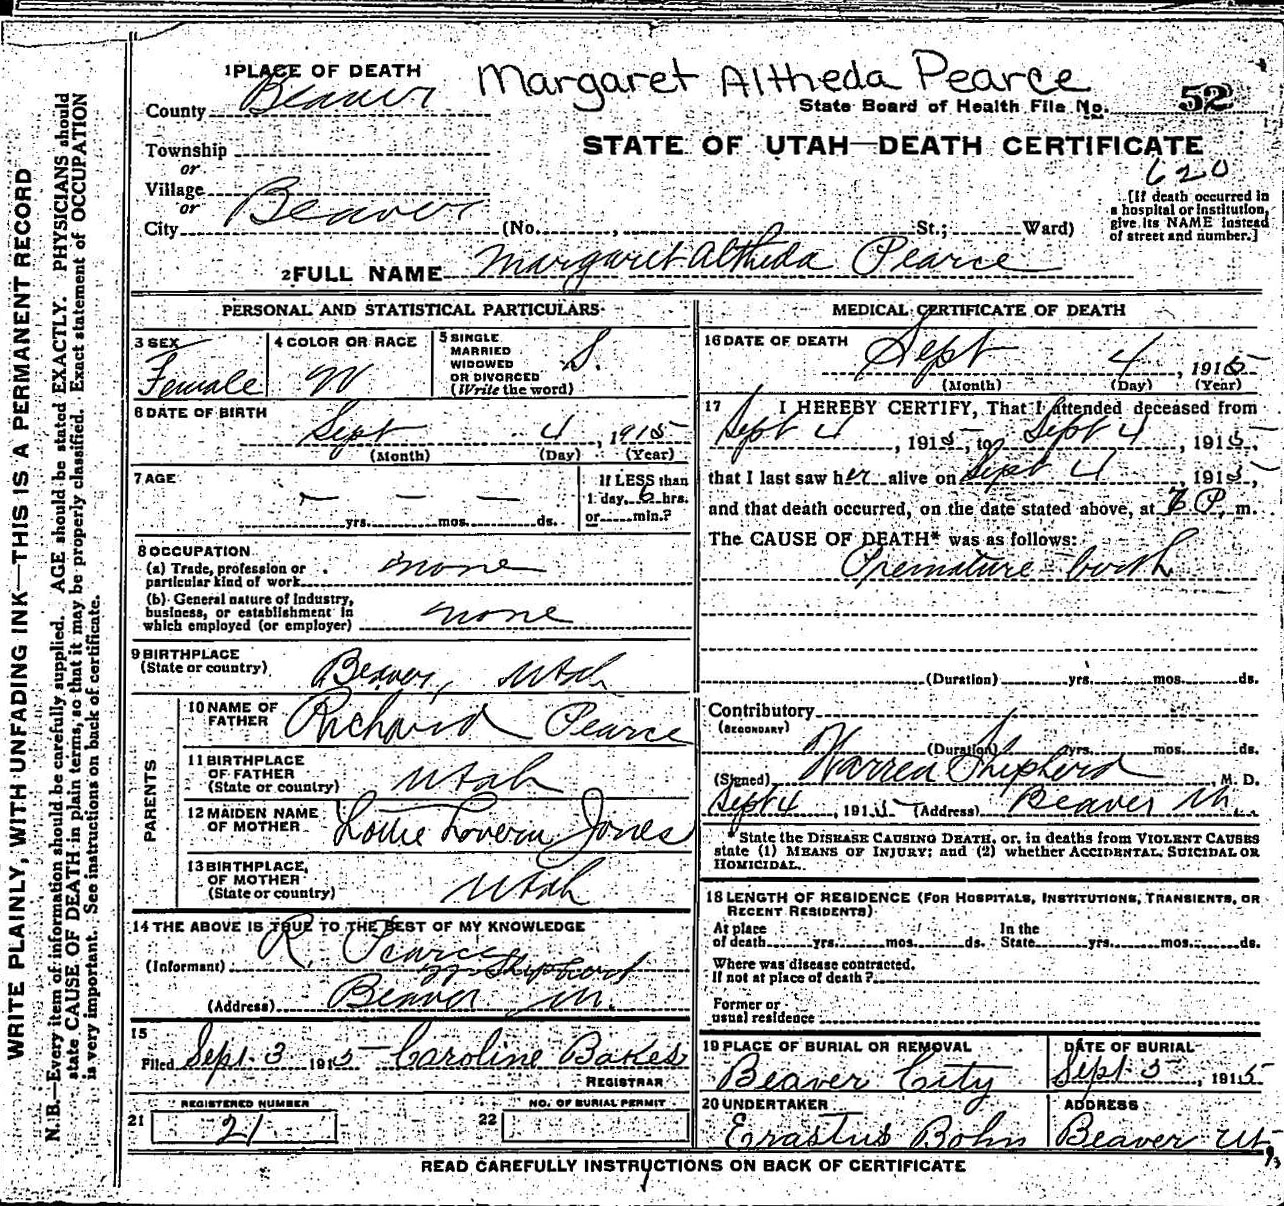 Margaret Altheda Pearce
1 PLACE OF DEATH
County Beaver
State Board of Health File No. 52
Township
or
STATE OF UTAH—DEATH CERTIFICATE
620
Village
or
City Beaver (No. , St.; Ward)
[If death occurred in a hospital or institution, give its NAME instead of street and number.]
2 FULL NAME Margaret Altheda Pearce
PERSONAL AND STATISTICAL PARTICULARS
3 SEX
Female
4 COLOR OR RACE
W
5 SINGLE
MARRIED
WIDOWED
OR DIVORCED
(Write the word)
S.
6 DATE OF BIRTH
Sept 4, 1915
(Month) (Day) (Year)
7 AGE
— — —
yrs. mos. ds.
If LESS than
1 day, 6 hrs.
or min.?
8 OCCUPATION
(a) Trade, profession or
particular kind of work none
(b) General nature of Industry,
business, or establishment in
which employed (or employer) none
9 BIRTHPLACE
(State or country) Beaver, Utah
PARENTS
10 NAME OF
FATHER Richard Pearce
11 BIRTHPLACE
OF FATHER
(State or country) Utah
12 MAIDEN NAME
OF MOTHER Lottie Jones
13 BIRTHPLACE,
OF MOTHER
(State or country) Utah
14 THE ABOVE IS TRUE TO THE BEST OF MY KNOWLEDGE
(Informant) R. Pearce
Shepherd
(Address) Beaver Ut.
15
Filed Sept. 3 1915 Caroline Bakes
REGISTRAR
REGISTERED NUMBER
21 21
NO. OF BURIAL PERMIT
22
MEDICAL CERTIFICATE OF DEATH
16 DATE OF DEATH
Sept 4, 1915
(Month) (Day) (Year)
17 I HEREBY CERTIFY, That I attended deceased from
Sept 4, 1915, to Sept 4, 1915,
that I last saw her alive on Sept 4, 1915,
and that death occurred, on the date stated above, at P. m.
The CAUSE OF DEATH* was as follows:
Premature birth
(Duration) yrs. mos. ds.
Contributory
(SECONDARY)
(Duration) yrs. mos. ds.
(Signed) Warren Shepherd, M. D.
Sept 4, 1915 (Address) Beaver Ut.
* State the DISEASE CAUSING DEATH, or, in deaths from VIOLENT CAUSES
state (1) MEANS OF INJURY; and (2) whether ACCIDENTAL, SUICIDAL OR
HOMICIDAL.
18 LENGTH OF RESIDENCE (FOR HOSPITALS, INSTITUTIONS, TRANSIENTS, OR
RECENT RESIDENTS)
At place of death yrs. mos. ds. In the State yrs. mos. ds.
Where was disease contracted,
If not at place of death?
Former or
usual residence
19 PLACE OF BURIAL OR REMOVAL
Beaver City
DATE OF BURIAL
Sept. 5, 1915
20 UNDERTAKER
Erastus Bohn
ADDRESS
Beaver Ut
READ CAREFULLY INSTRUCTIONS ON BACK OF CERTIFICATE
WRITE PLAINLY, WITH UNFADING INK—THIS IS A PERMANENT RECORD
N.B.—Every item of information should be carefully supplied. AGE should be stated EXACTLY. PHYSICIANS should
state CAUSE OF DEATH in plain terms, so that it may be properly classified. Exact statement of OCCUPATION
is very important. See instructions on back of certificate.